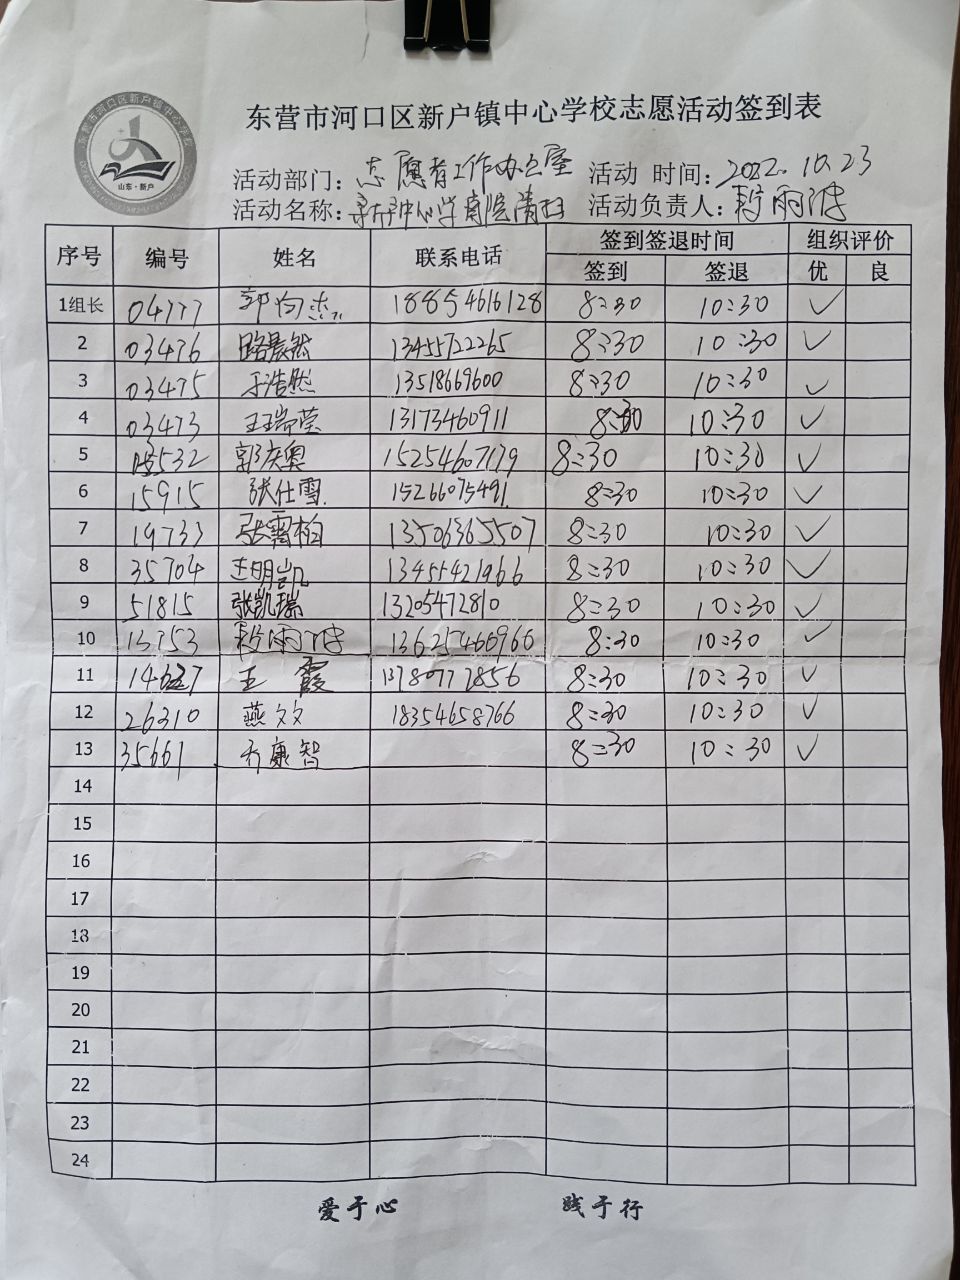 东营市河口区新户镇中心学校志愿活动签到表
山东·新户
活动部门：志愿者工作办公室 活动 时间：2022.10.23
活动名称：新户中心学 清扫 活动负责人：雨
序号 编号 姓名 联系电话 签到签退时间 组织评价
签到 签退 优 良
1组长 04777 郭向杰 18854616128 8:30 10:30 ✓
2 03476 路晨然 13455722265 8:30 10:30 ✓
3 03475 于浩然 13518669600 8:30 10:30 ✓
4 03473 王瑞莹 13173460911 8:30 10:30 ✓
5 郭庆奥 15254607179 8:30 10:30 ✓
6 15915 张仕雪 15266075491 8:30 10:30 ✓
7 19733 张 柏 13506365507 8:30 10:30 ✓
8 35704 王明凯 13455421966 8:30 10:30 ✓
9 51815 张凯瑞 13205472810 8:30 10:30 ✓
10 13753 雨 13625466966 8:30 10:30 ✓
11 王霞 13780772856 8:30 10:30 ✓
12 26310 燕文文 18354658766 8:30 10:30 ✓
13 35661 乔康智 8:30 10:30 ✓
14
15
16
17
18
19
20
21
22
23
24
爱于心 践于行